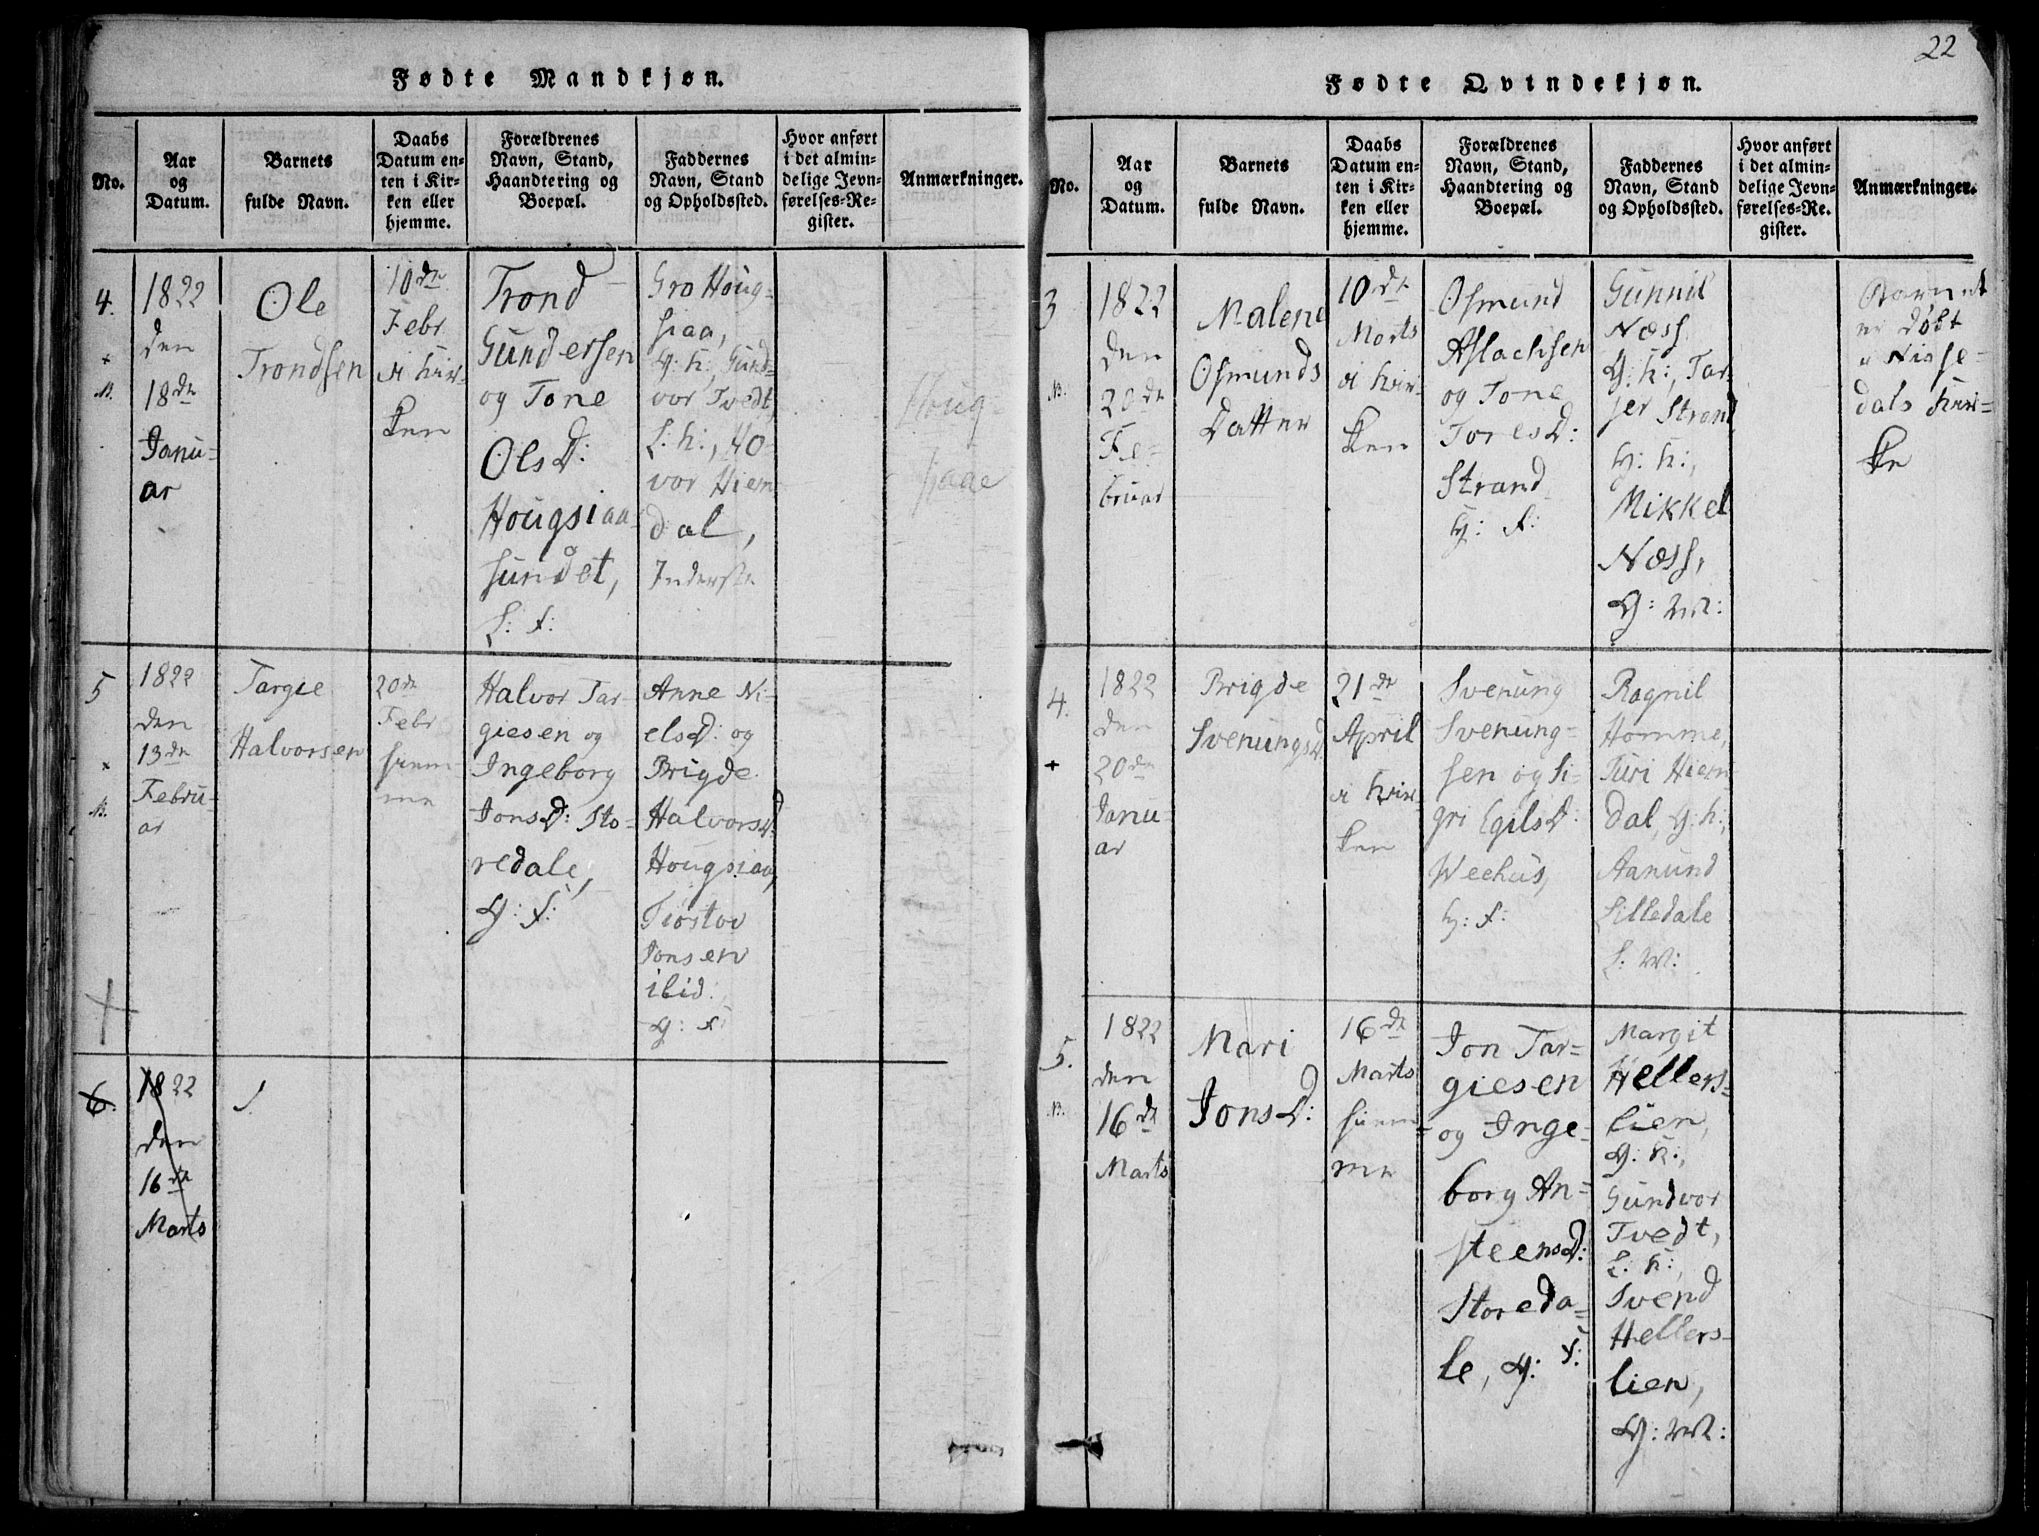 22
Fødte Mandkjøn.
No.
Aar
og
Datum.
Barnets
fulde Navn.
Daabs
Datum en-
ten i Kir-
ken eller
hjemme.
Forældrenes
Navn, Stand,
Haandtering og
Boepæl.
Faddernes
Navn, Stand
og Opholdssted.
Hvor anført
i det almin-
delige Jevn-
førelses-Re-
gister.
Anmærkninger.
4.
1822
den
18de
Janu-
ar
Ole
Trondsen
10de
Febr
i Kir-
ken
Trond
Gundersen
og Tone
OlsD:
Hougsiaa-
sundet,
L: F:
Gro Houg-
siaa,
G: K:, Gund-
vor Tvedt,
L: K:, Ho-
vor Hiem-
dal,
Inderste
5
1822
den
13de
Febru-
ar
Targie
Halvorsen
20de
Febr
hiem-
me
Halvor Tar-
giesen og
Ingeborg
JonsD: Sto-
redale,
G: F:
Anne Ni-
elsD: og
Brigde
HalvorsD:
Hougsiaa,
Tiostov
Jonsen
ibid:
G: F:
6.
1822
den
16de
Marts
Fødte Qvindekjøn.
No.
Aar
og
Datum.
Barnets
fulde Navn.
Daabs
Datum en-
ten i Kir-
ken eller
hjemme.
Forældrenes
Navn, Stand,
Haandtering og
Boepæl.
Faddernes
Navn, Stand
og Opholdssted.
Hvor anført
i det almin-
delige Jevn-
førelses-Re-
gister.
Anmærkninger.
3
1822
den
20de
Fe-
bruar
Malene
Osmunds
Datter
10de
Marts
i Kir-
ken
Osmund
Aslachsen
og Tone
ToresD:
Strand
G: F:
Gunnil
Næss
G: K:, Tar-
jer Strand
G: K:,
Mikkel
Næss,
G: M:
Barnet
er døbt
i Nisse-
dals Kir-
ke
4.
1822
den
20de
Janu-
ar
Brigde
SvenungsD:
21de
April
i Kir-
ken
Svenung
Svenung-
sen og Si-
gri EgilsD:
Weehus,
G: F:
Ragnil
Homme,
Turi Hiem-
dal, G: K:,
Aanund
Lilledale
L: M:
5.
1822
den
16de
Marts
Mari
JonsD:
16de
Marts
hiem-
me
Jon Tar-
giesen
og Inge-
borg An-
steensD:
Storeda-
le, G: F:
Margit
Hellers-
lien,
G: K:,
Gundvor
Tvedt,
L: K:,
Svend
Hellers-
lien,
G: M: